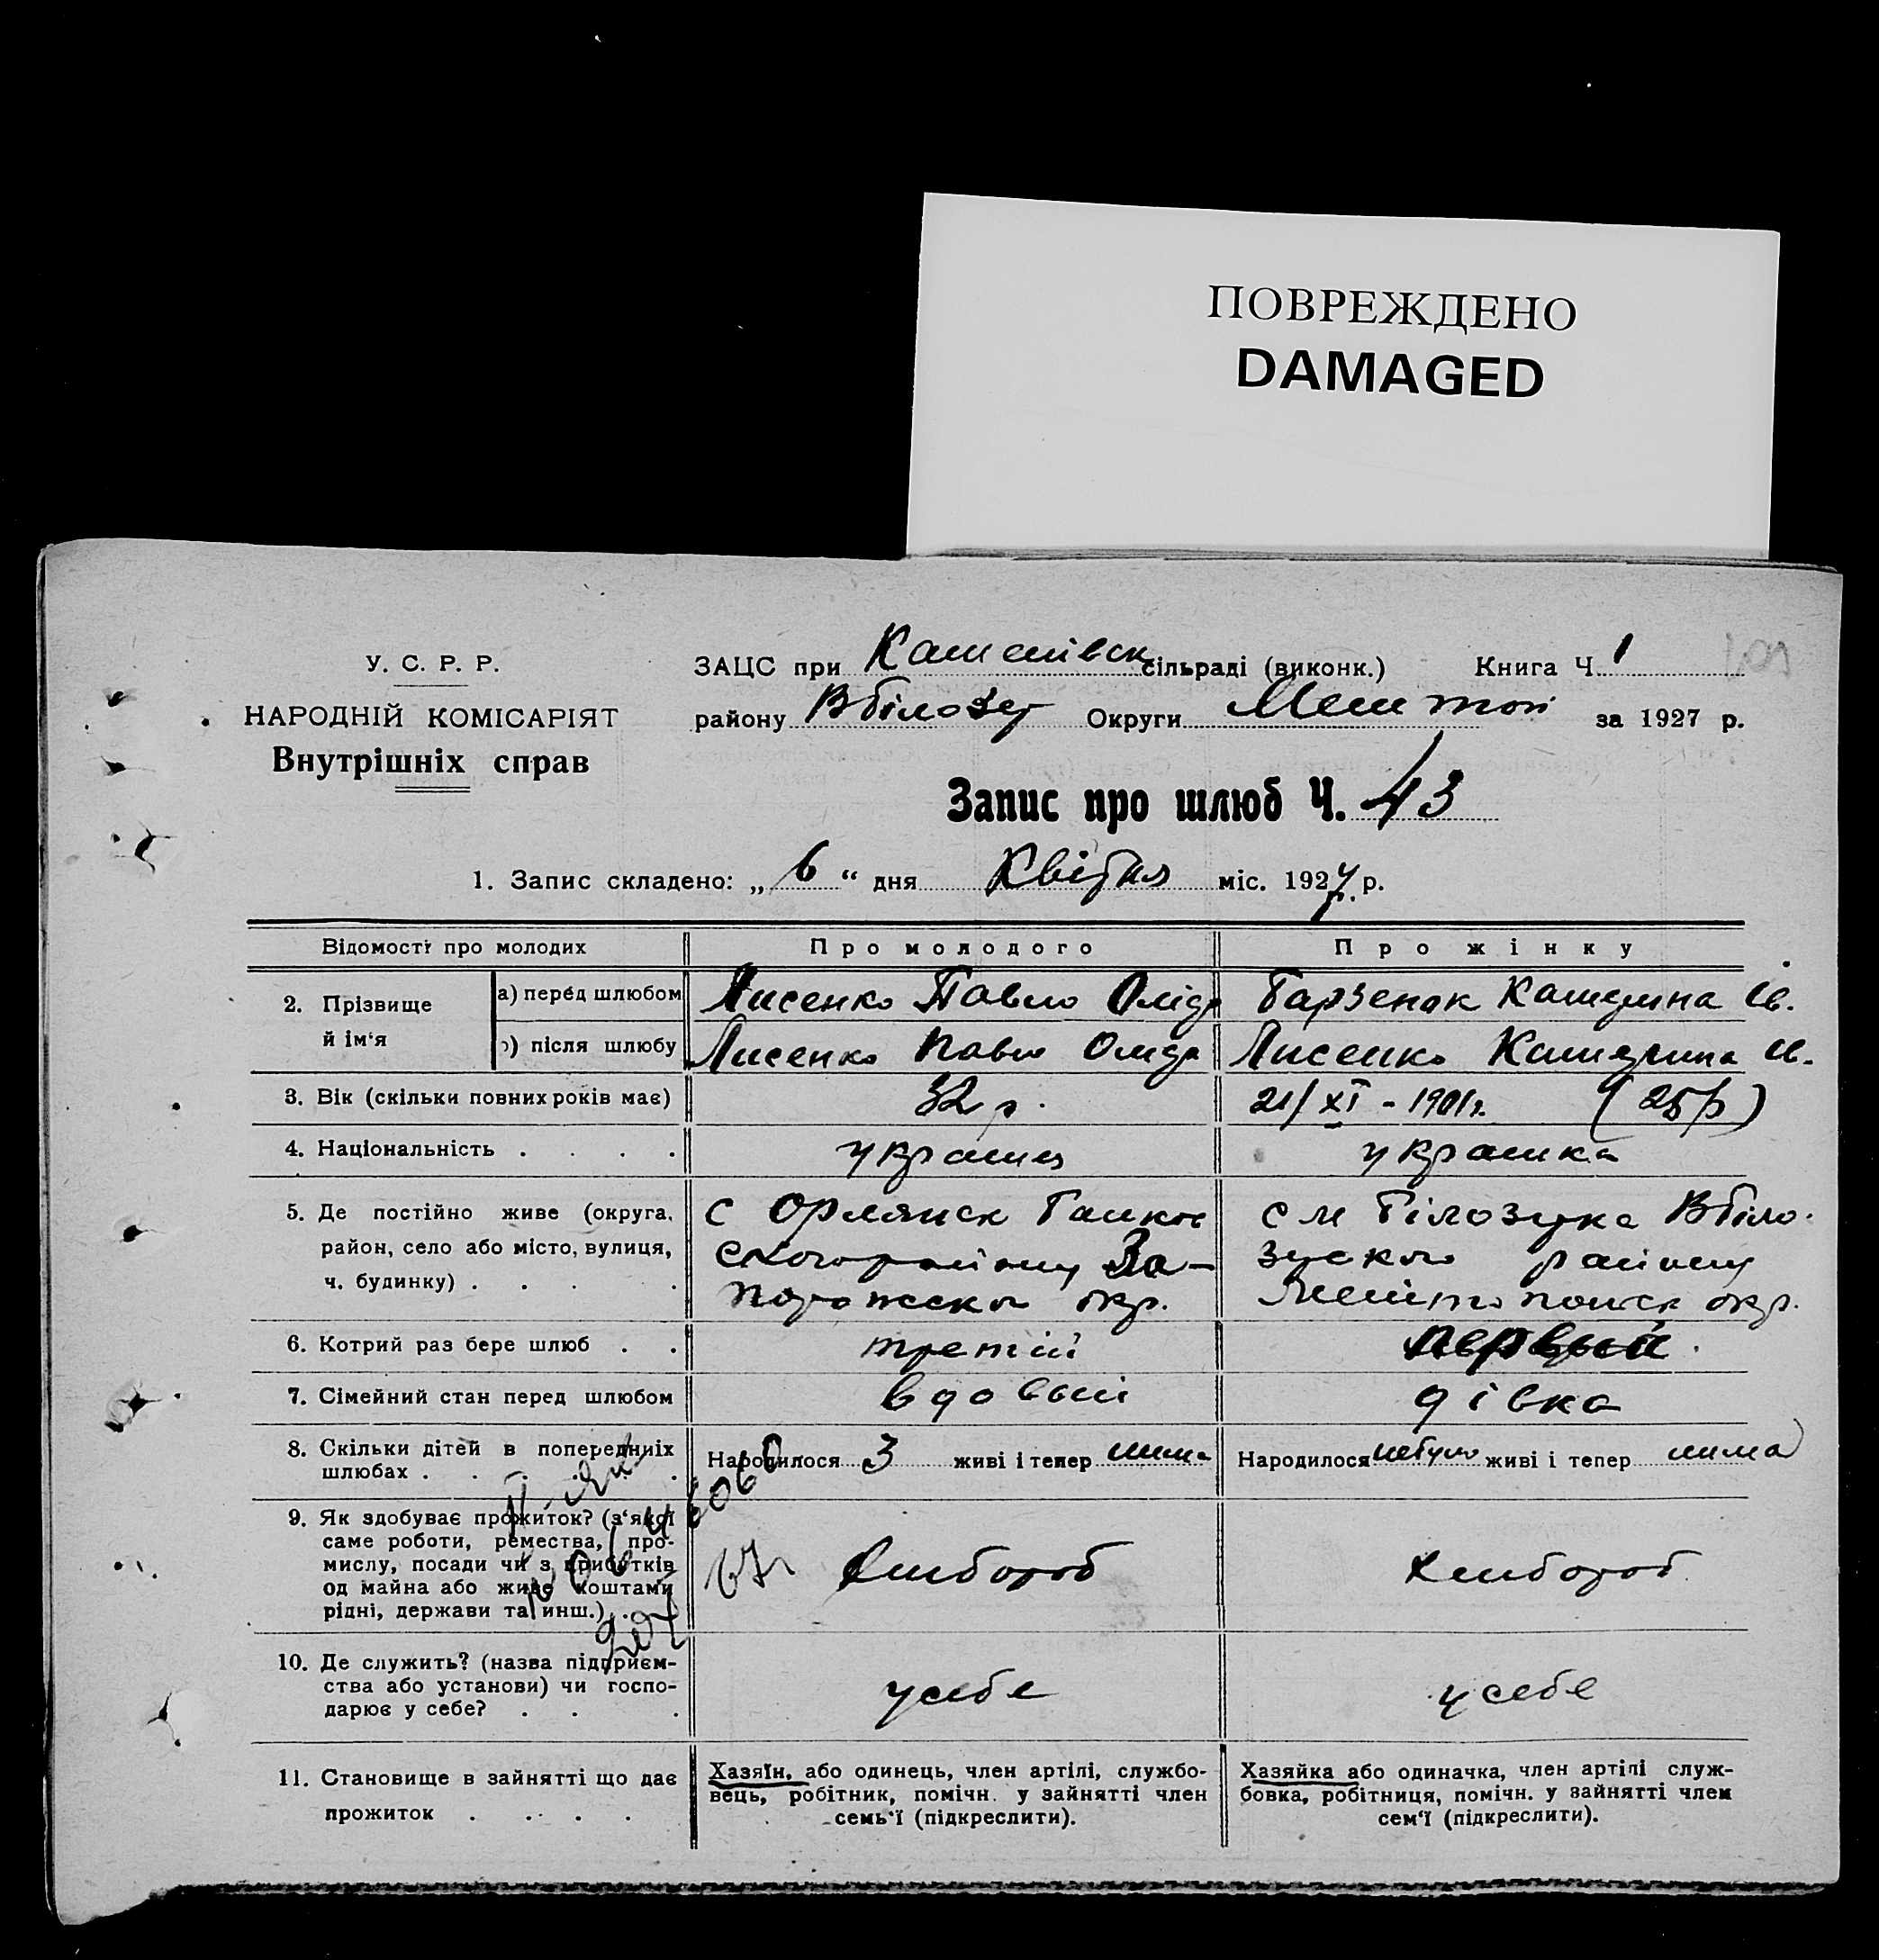 ПОВРЕЖДЕНО
DAMAGED
У. С. Р. Р.
НАРОДНІЙ КОМІСАРІЯТ
Внутрішніх справ
ЗАЦС при сільраді (виконк.) Книга Ч. 1
району Вбілозер Округи за 1927 р.
Запис про шлюб Ч. 43
1. Запис складено: „ 6 “ дня Квітня міс. 1927 р.
Відомості про молодих
Про молодого
Про жінку
2. Прізвище й ім‘я
а) перед шлюбом
Лисенко Павло
Катерина Ів.
б) після шлюбу
Лисенко Павло
Лисенко Катерина Ів.
3. Вік (скільки повних років має)
32 р.
21/XI - 1901 г. (25 р)
4. Національність . . . .
українец
українка
5. Де постійно живе (округа,
район, село або місто, вулиця,
ч. будинку) . . . .
с Орлянск
району За-
порожскоі окр.
с м Білозурка Вбіло-
зурского району
окр.
6. Котрий раз бере шлюб . .
третій
первый
7. Сімейний стан перед шлюбом
вдовый
дівка
8. Скільки дітей в попередніх
шлюбах . . . .
Народилося 3 живі і тепер нима
Народилося небуло живі і тепер нима
9. Як здобуває прожиток? (з‘якої
саме роботи, ремества, про-
мислу, посади чи з прибутків
од майна або живе коштами
рідні, держави та инш.) .
Хлибороб
Хлибороб
10. Де служить? (назва підприєм-
ства або установи) чи госпо-
дарює у себе? . . .
у себе
у себе
11. Становище в зайнятті що дає
прожиток . . . .
Хазяїн, або одинець, член артілі, службо-
вець, робітник, помічн. у зайнятті член
семь‘ї (підкреслити).
Хазяйка або одиначка, член артілі служ-
бовка, робітниця, помічн. у зайнятті член
сем‘ї (підкреслити).